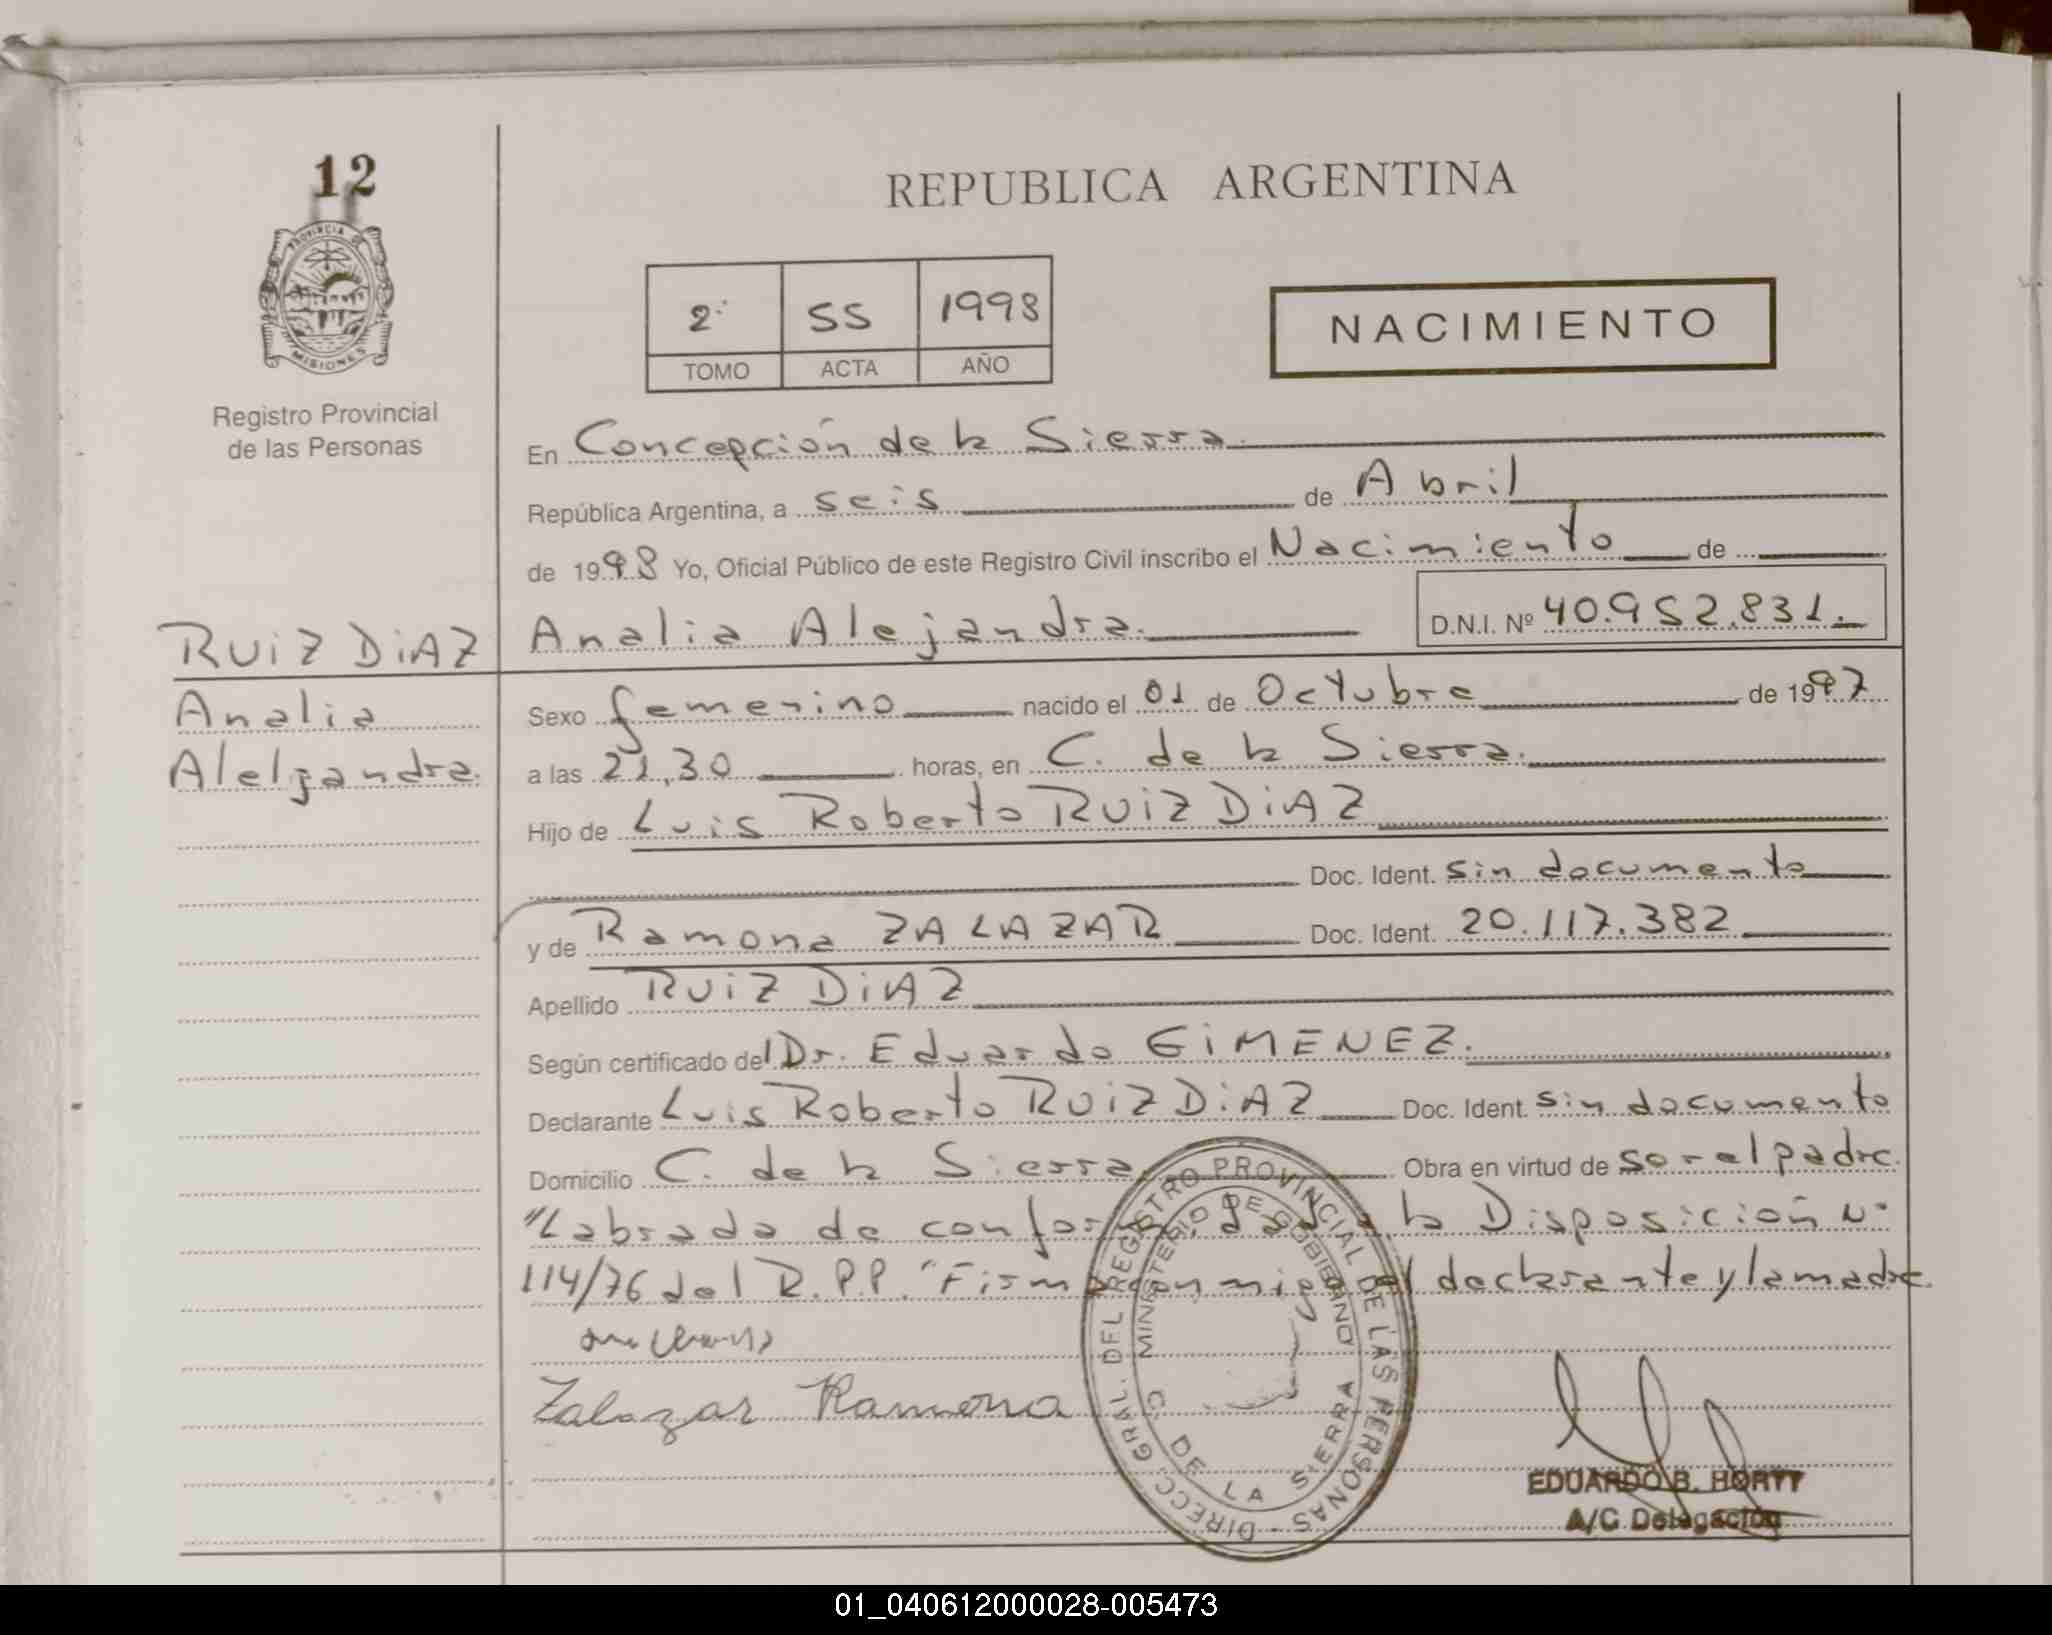 12
PROVINCIA DE
MISIONES
Registro Provincial
de las Personas
REPUBLICA ARGENTINA
2º 55 1998
TOMO ACTA AÑO
NACIMIENTO
En Concepción de la Sierra.
República Argentina, a seis de Abril
de 1998 Yo, Oficial Público de este Registro Civil inscribo el Nacimiento de
Analia Alejandra. D.N.I. Nº 40.952.831.
RUiZ DiAZ
Analia
Alejandra.
Sexo femenino nacido el 01 de Octubre de 1997
a las 21,30 horas, en C. de la Sierra.
Hijo de Luis Roberto RUiZ DiAZ
Doc. Ident. sin documento
y de Ramona ZALAZAR Doc. Ident. 20.117.382
Apellido RUiZ DiAZ
Según certificado del Dr. Eduardo GiMENEZ.
Declarante Luis Roberto RUiZ DiAZ Doc. Ident. sin documento
Domicilio C. de la Sierra Obra en virtud de ser el padre.
"Labrada de conformidad a la Disposición Nº
114/76 del R.P.P." Firman conmigo el declarante y la madre.
Zalazar Ramona
DIRECC. GRAL. DEL REGISTRO PROVINCIAL DE LAS PERSONAS -
MINISTERIO DE GOBIERNO
C. DE LA SIERRA
EDUARDO B. HORYY
A/C Delegación
01_040612000028-005473